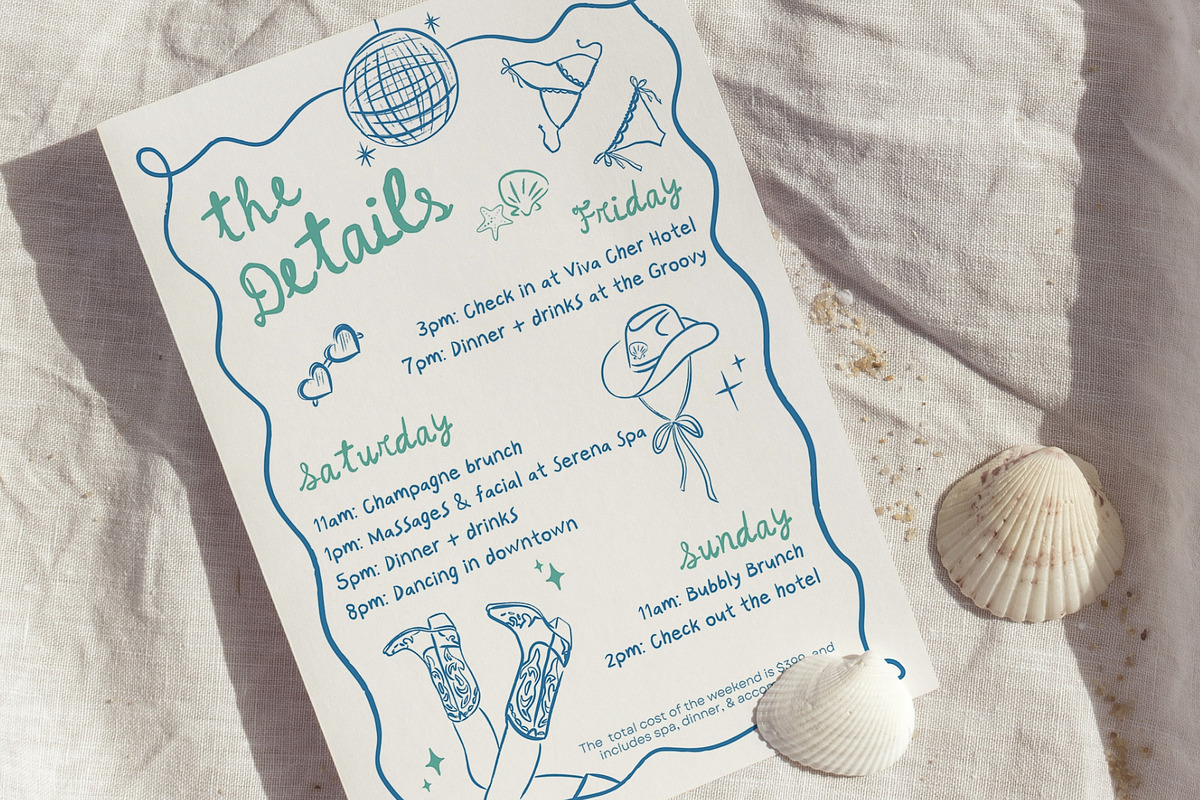 the
Details
Friday
3pm: Check in at Viva Cher Hotel
7pm: Dinner + drinks at the Groovy
saturday
11am: Champagne brunch
1pm: Massages & facial at Serena Spa
5pm: Dinner + drinks
8pm: Dancing in downtown
sunday
11am: Bubbly Brunch
2pm: Check out the hotel
The total cost of the weekend is $399, and
includes spa, dinner, &